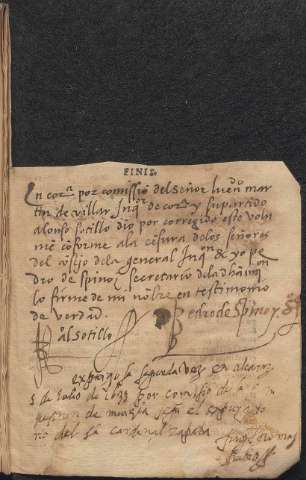 FINIS.
En cor.ª por comissiō del señor liceñ mar
tin de villar Inq.ᵒʳ de cordª y su partido
alonso sotillo dio por corregido este volu
mē cōforme a la cēsura de los señores
del cōsejo de la general Inq.ᵒⁿ & yo pe
dro de spinoº secretario de la dha inq.ᵒⁿ
lo firme de mi nōbre en testimonio
de verdad.
al Sotillo Pedro de Spinoº
expurgo la segunda vez en
de Julio de 1633 por comissiō de la In
quisicion de murçia segū el expurgato
rio del sr. cardenal Zapata